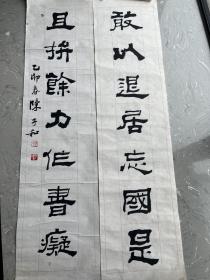 敢以退居忘國是
且拚餘力作書癡
乙卯春陳子和